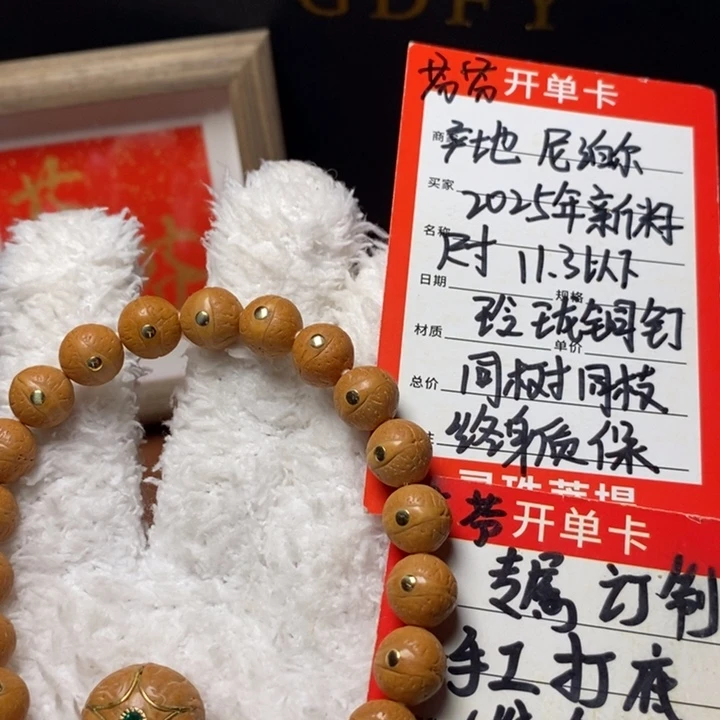 GDFY
苦苦开单卡
商家 产地 尼泊尔
买家 2025年新籽
名称 尺寸 11.3以下
日期 规格
材质 玲珑铜钉
单价
总价 同树同枝
注 终身质保
灵珠菩提
苦开单卡
专属订制
手工打底